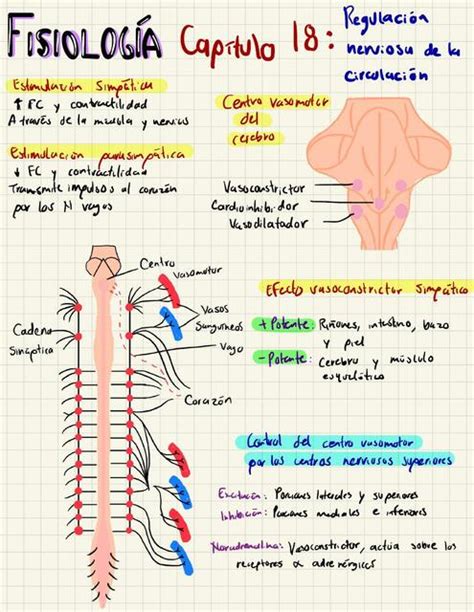 FISIOLOGÍA Capítulo 18:
Regulación
nerviosa de la
circulación
Estimulación Simpática
↑ FC y contractilidad
A través de la médula y nervios
Estimulación parasimpática
↓ FC y contractilidad
Transmite impulsos al corazón
por los N vagos
Centro vasomotor
del
cerebro
Vasoconstrictor
Cardioinhibidor
Vasodilatador
Centro
Vasomotor
Vasos
Sanguíneos
Vago
Cadena
Sináptica
Corazón
Efecto vasoconstrictor Simpático
+ Potente: Riñones, intestino, bazo
y piel
- Potente: Cerebro y músculo
esquelético
Control del centro vasomotor
por los centros nerviosos superiores
Excitación: Porciones laterales y superiores
Inhibición: Porciones mediales e inferiores
Noradrenalina: Vasoconstrictor, actúa sobre los
receptores α adrenérgicos